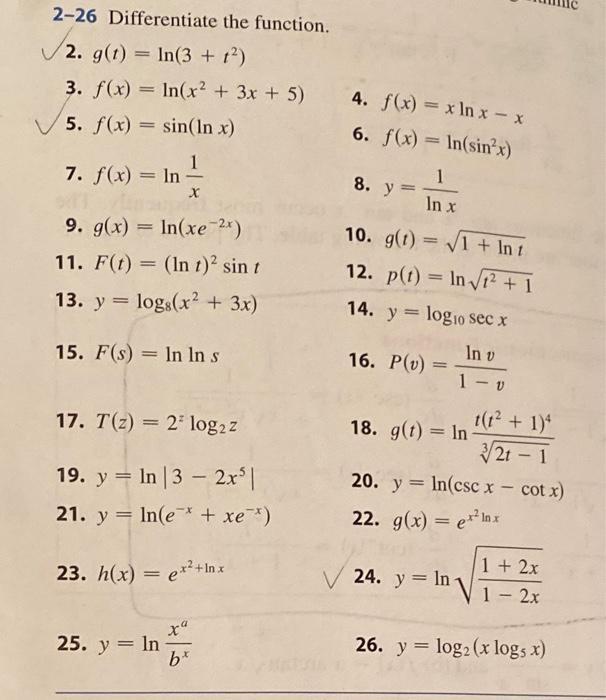 2–26 Differentiate the function.
2. g(t) = ln(3 + t²)
3. f(x) = ln(x² + 3x + 5)
4. f(x) = x ln x − x
5. f(x) = sin(ln x)
6. f(x) = ln(sin²x)
7. f(x) = ln 1/x
8. y = 1/ln x
9. g(x) = ln(xe⁻²ˣ)
10. g(t) = √(1 + ln t)
11. F(t) = (ln t)² sin t
12. p(t) = ln √(t² + 1)
13. y = log₈(x² + 3x)
14. y = log₁₀ sec x
15. F(s) = ln ln s
16. P(v) = ln v/(1 − v)
17. T(z) = 2ᶻ log₂ z
18. g(t) = ln t(t² + 1)⁴/∛(2t − 1)
19. y = ln |3 − 2x⁵|
20. y = ln(csc x − cot x)
21. y = ln(e⁻ˣ + xe⁻ˣ)
22. g(x) = e^(x² ln x)
23. h(x) = e^(x²+ln x)
24. y = ln √((1 + 2x)/(1 − 2x))
25. y = ln xᵃ/bˣ
26. y = log₂(x log₅ x)